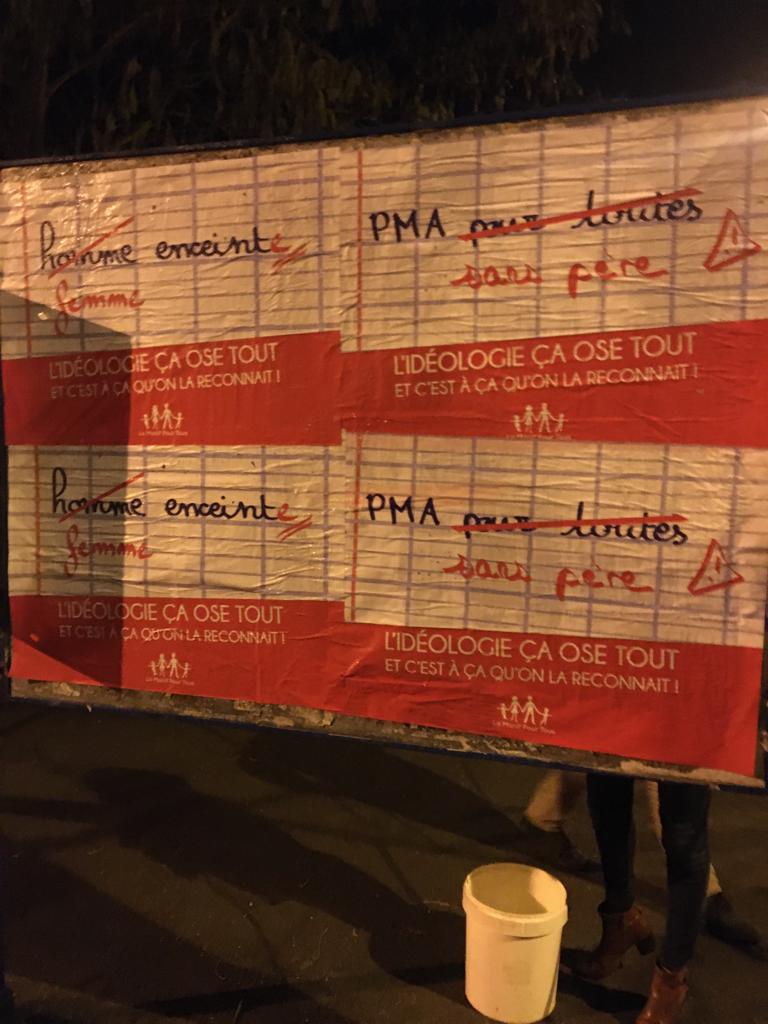 homme enceinte
femme
L'IDÉOLOGIE ÇA OSE TOUT
ET C'EST À ÇA QU'ON LA RECONNAIT !
La Manif Pour Tous
PMA pour toutes
sans père
L'IDÉOLOGIE ÇA OSE TOUT
ET C'EST À ÇA QU'ON LA RECONNAIT !
La Manif Pour Tous
homme enceinte
femme
L'IDÉOLOGIE ÇA OSE TOUT
ET C'EST À ÇA QU'ON LA RECONNAIT !
La Manif Pour Tous
PMA pour toutes
sans père
L'IDÉOLOGIE ÇA OSE TOUT
ET C'EST À ÇA QU'ON LA RECONNAIT !
La Manif Pour Tous